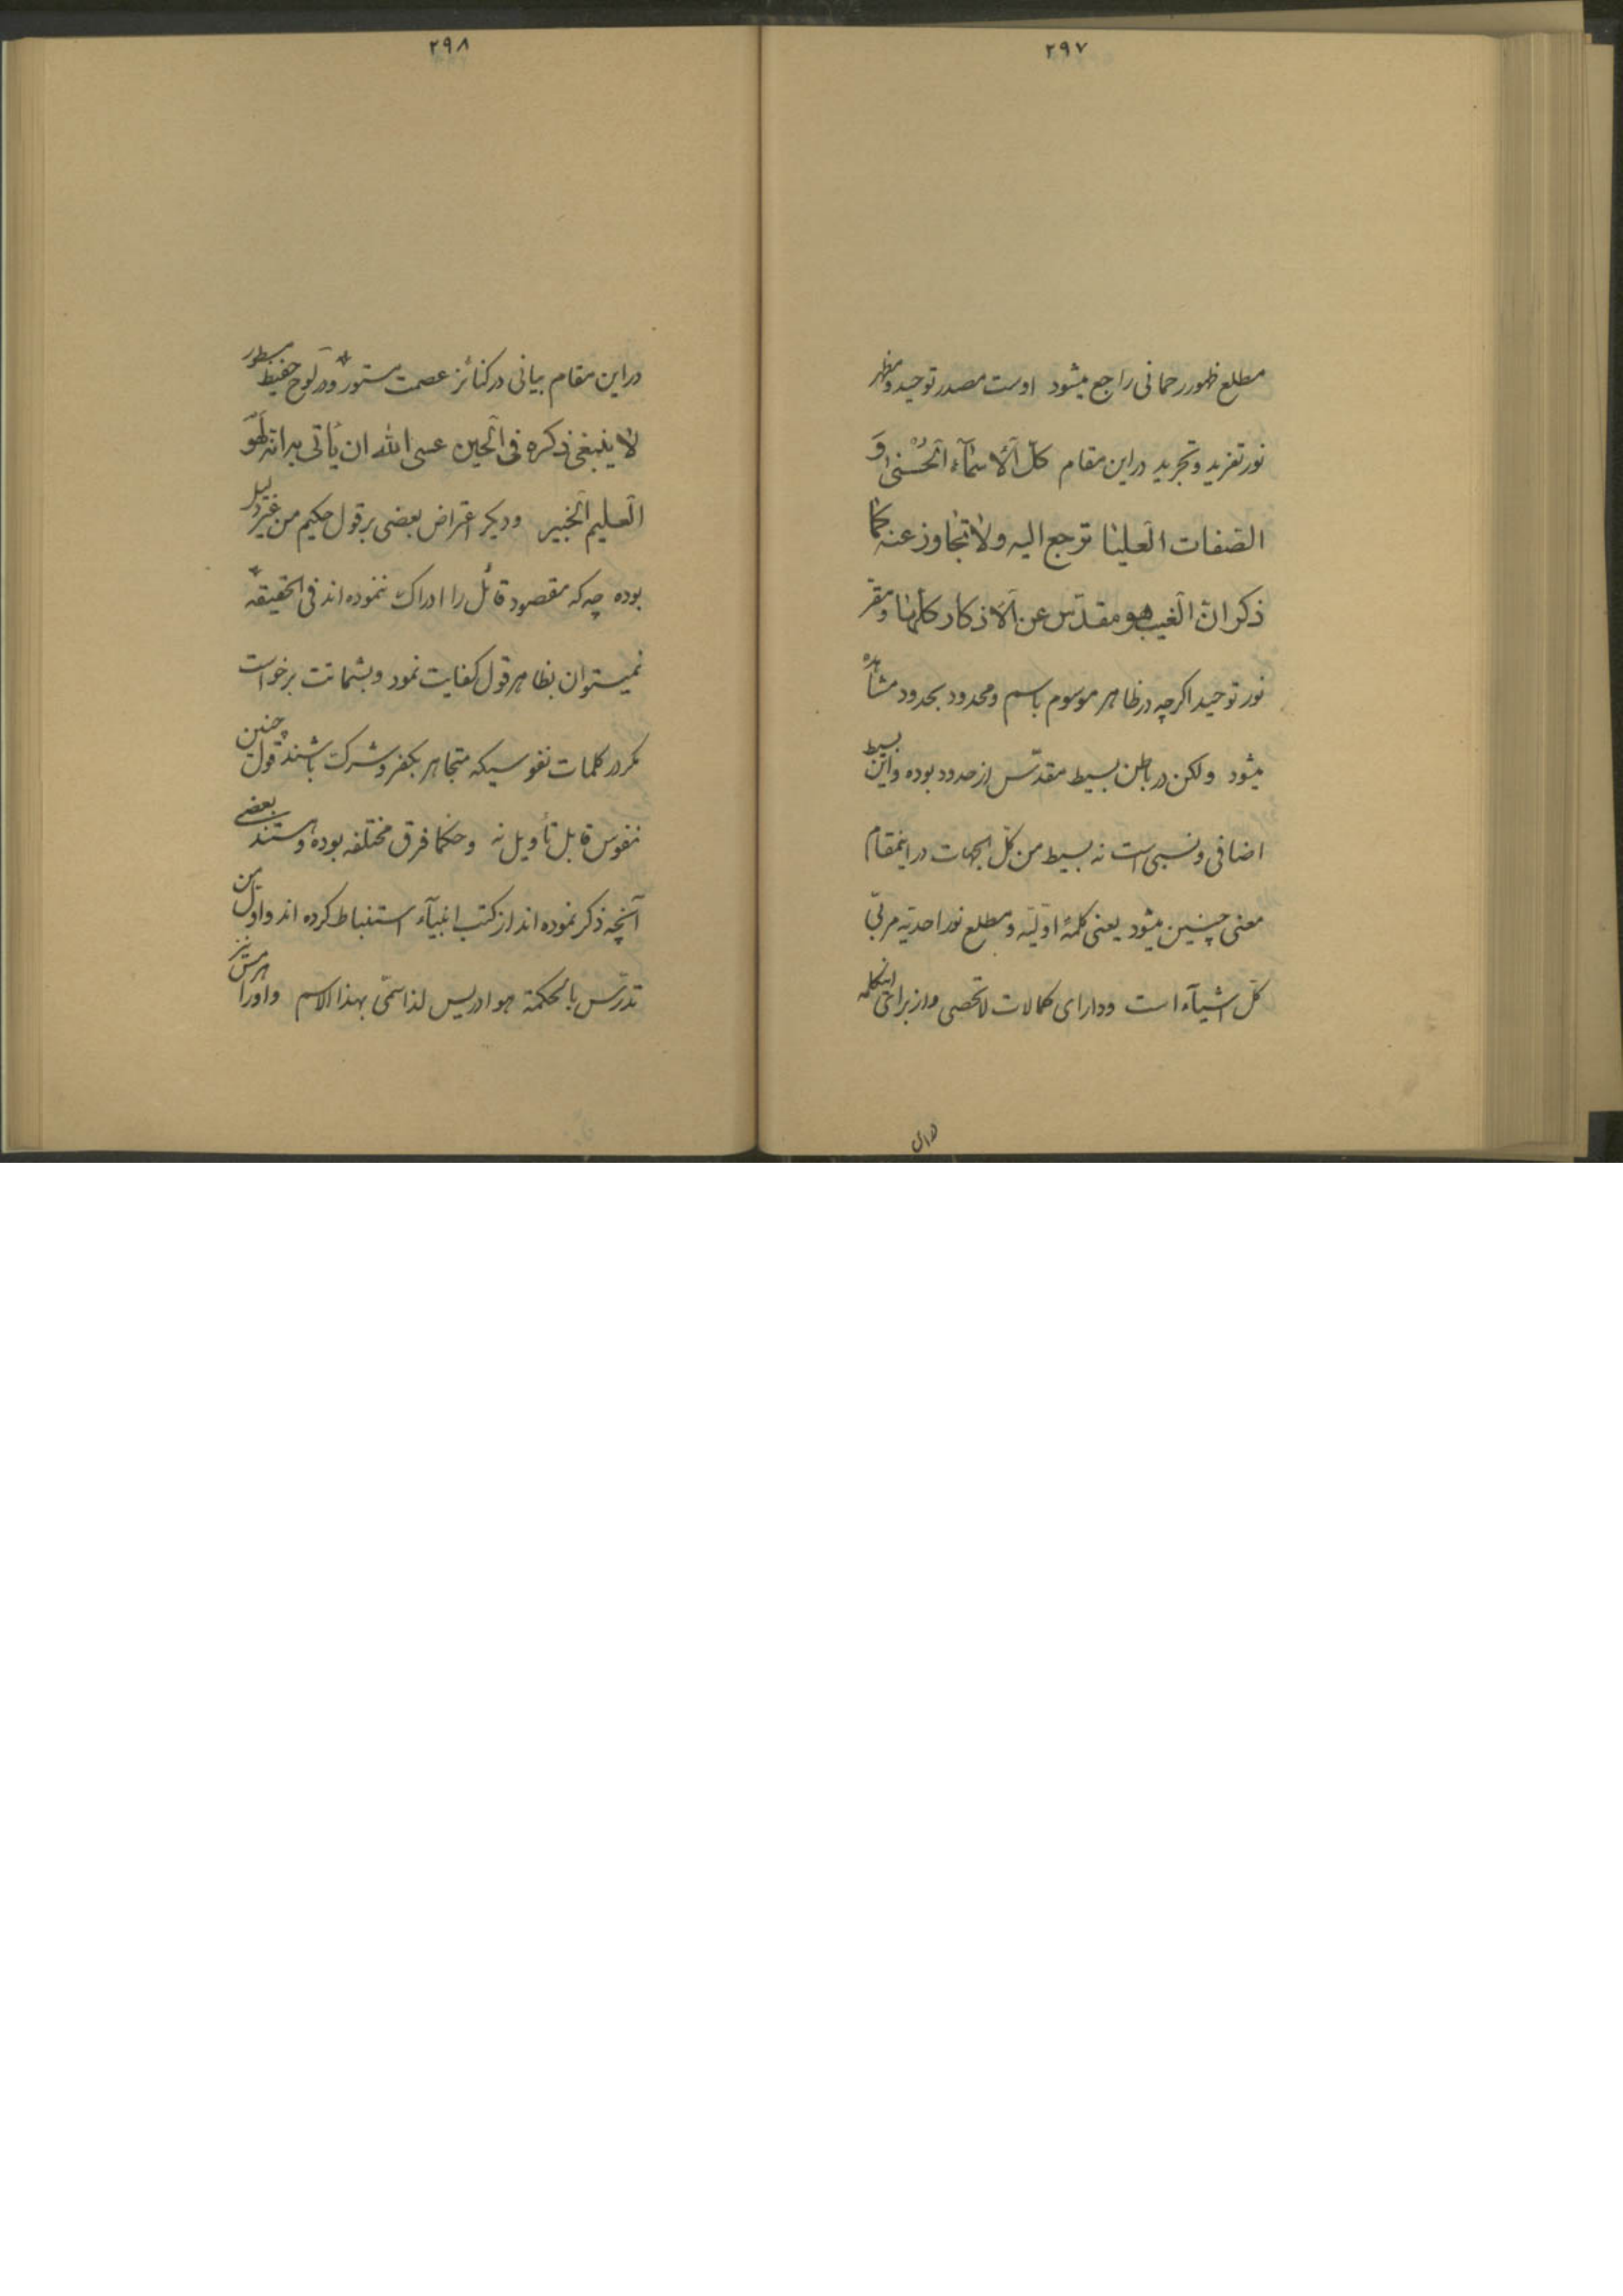 ۲۹۷
مطلع ظهور رحمانی راجع میشود اوست مصدر توحید و مظهر
نور تفرید و تجرید در این مقام کلّ الأسمآء الحُسنی وَ
الصّفات العلیا ترجع الیه ولا تجاوز عنه کما
ذکر انّ الغیب هو مقدّس عن الأذکار کلّها و مقر
نور توحید اکرچه در ظاهر موسوم باسم و محدود بحدود مشاهده
میشود ولکن در باطن بسیط مقدّس از حدود بوده و این بسیط
اضافی و نسبی است نه بسیط من کلّ الجهات در اینمقام
معنی چنین میشود یعنی کلمهٔ اوّلیّه و مطلع نور احدیّه مربّی
کلّ اشیآء است و دارای کمالات لاتحصی و از برای اینکلمه
۲۹۸
در این مقام بیانی در کنائز عصمت مستور و در لوح حفیظ مسطور
لا ینبغی ذکره فی الحین عسی الله ان یأتی به انّه لهو
العلیم الخبیر و دیکر اعتراض بعضی بر قول حکیم من غیر دلیل
بوده چه که مقصود قائل را ادراک ننموده اند فی الحقیقه
نمیتوان بظاهر قول کفایت نمود و بشماتت برخواست
مکر در کلمات نفوسیکه متجاهر بکفر و شرک باشند قول چنین
نفوس قابل تأویل نه و حکما فرق مختلفه بوده و هستند بعضی
آنچه ذکر نموده اند از کتب انبیآء استنباط کرده اند و اوّل من
تدرّس بالحکمة هو ادریس لذا سمّی بهذا الاسم و او را هرمس نیز